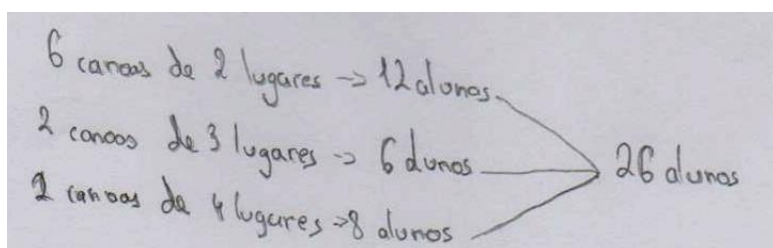 6 canoas de 2 lugares -> 12 alunos
2 canoas de 3 lugares -> 6 alunos
2 canoas de 4 lugares -> 8 alunos
26 alunos